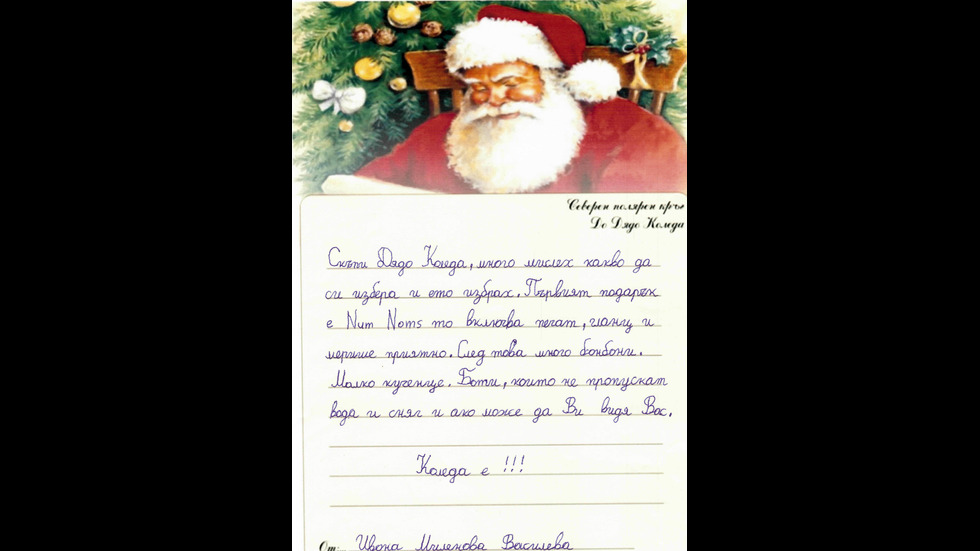 Северен полярен кръг
До Дядо Коледа
Скъпи Дядо Коледа, много мислех какво да
си избера и ето избрах. Първият подарък
е Num Noms то включва печат, гланц и
мерише приятно. След това много бонбони.
Малко кученце. Боти, които не пропускат
вода и сняг и ако може да Ви видя Вас.
Коледа е !!!
От: Ивона Миленова Василева